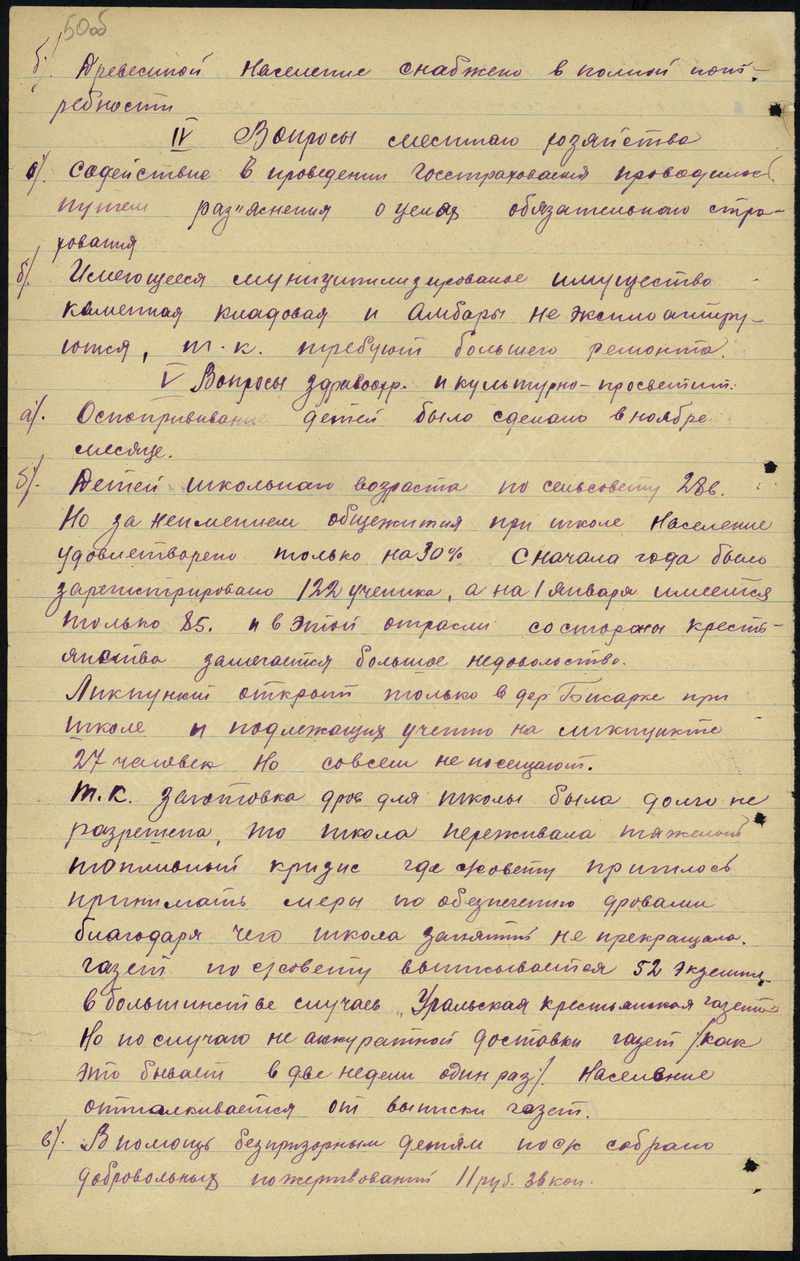 50об
б/. Древесиной население снабжено в полной пот-
ребности
IV Вопросы местного хозяйства
а/. Содействие в проведении Госстрахования проводилось
путем раз"яснения о целях обязательного стра-
хования
б/. Имеющееся муниципилизированое имущество
каменная кладовая и Амбары не эксплоатиру-
ются, т.к. требуют большего ремонта.
V Вопросы здравоохр. и культурно-просветит.
а/. Оспопрививание детей было сделано в ноябре
месяце.
б/. Детей школьного возраста по сельсовету 286.
Но за неимением общежития при школе население
удовлетворено только на 30% С начала года было
зарегистрировано 122 ученика, а на 1 января имеется
только 85. и в этой отрасли со стороны кресть-
янства замечается большое недовольство.
Ликпункт открыт только в дер Бисарке при
школе и подлежащих учету на ликпункте
27 человек но совсем не посещают.
Т.К. заготовка дров для школы была долго не
разрешена, то школа переживала тяжелый
топливный кризис где с/совету пришлось
принимать меры по обезпечению дровами
благодаря чего школа занятий не прекращала.
Газет по с/совету выписывается 52 экземпл.
в большинстве случаев „Уральская крестьянская газета"
Но по случаю не аккуратной доставки газет /как
это бывает в две недели один раз/. Население
отталкивается от выписки газет.
в/. В помощь безпризорным детям по с/с собрано
добровольных пожертвований 11 руб. 36 коп.